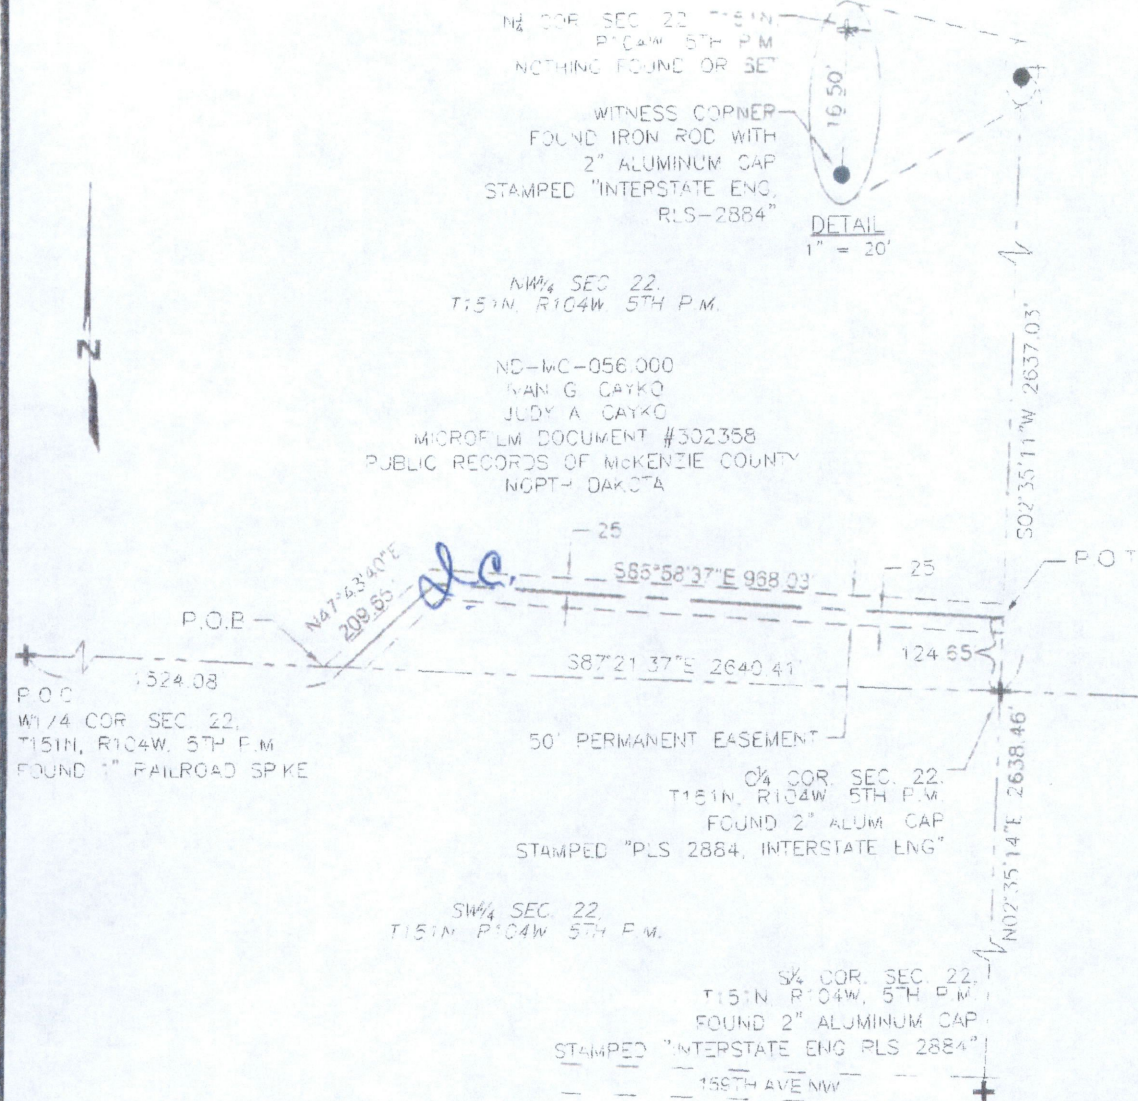 N¼ COR SEC 22 T151N
R104W 5TH P.M
NOTHING FOUND OR SET
16.50'
WITNESS CORNER
FOUND IRON ROD WITH
2" ALUMINUM CAP
STAMPED "INTERSTATE ENG.
RLS-2884"
DETAIL
1" = 20'
NW¼ SEC 22,
T151N, R104W, 5TH P.M.
N
S02°35'11"W 2637.03'
ND-MC-056.000
IVAN G CAYKO
JUDY A CAYKO
MICROFILM DOCUMENT #302358
PUBLIC RECORDS OF McKENZIE COUNTY
NORTH DAKOTA
25
I.C.
S85°58'37"E 968.03'
25
P.O.T
N47°43'40"E
209.65'
P.O.B
124.65
S87°21'37"E 2640.41'
1524.08
P.O.C
W1/4 COR SEC. 22,
T151N, R104W, 5TH P.M
FOUND 1" RAILROAD SPIKE
50' PERMANENT EASEMENT
C¼ COR. SEC. 22,
T151N, R104W 5TH P.M.
FOUND 2" ALUM CAP
STAMPED "PLS 2884, INTERSTATE ENG"
N02°35'14"E 2638.46'
SW¼ SEC. 22,
T151N R104W 5TH P.M.
S¼ COR. SEC. 22,
T151N, R104W, 5TH P.M.
FOUND 2" ALUMINUM CAP
STAMPED "INTERSTATE ENG PLS 2884"
159TH AVE NW